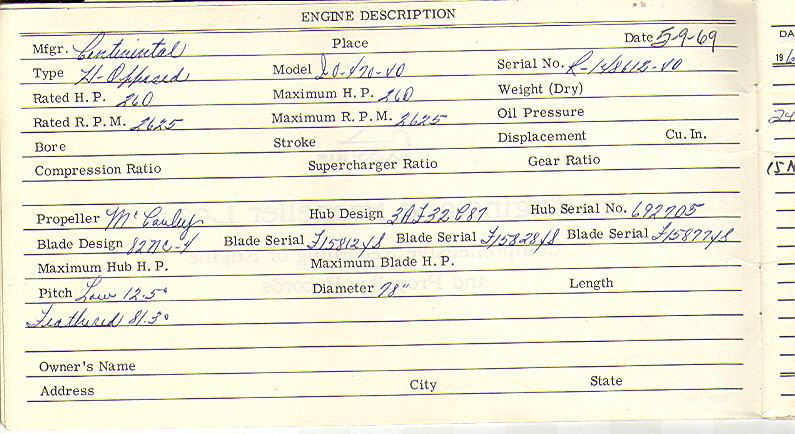 ENGINE DESCRIPTION
Mfgr. Continental Place Date 5-9-69
Type H-Opposed Model IO-470-VO Serial No. R-148612-VO
Rated H. P. 260 Maximum H. P. 260 Weight (Dry)
Rated R. P. M. 2625 Maximum R. P. M. 2625 Oil Pressure
Bore Stroke Displacement Cu. In.
Compression Ratio Supercharger Ratio Gear Ratio
Propeller McCauley Hub Design 3AF32C87 Hub Serial No. 692705
Blade Design 82NC-4 Blade Serial F15812YS Blade Serial F15828YS Blade Serial F15877YS
Maximum Hub H. P. Maximum Blade H. P.
Pitch Low 12.5° Diameter 78" Length
Feathered 81.3°
Owner's Name
Address City State
DA
19
24
15 N